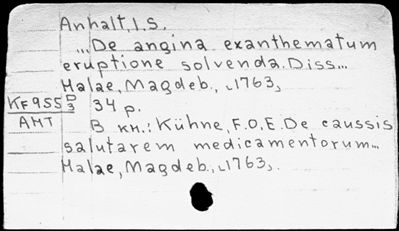 Anhalt, I.S.
...De angina exanthematum
eruptione solvenda. Diss...
Halae, Magdeb., ⌞1763⌟
KF955 D/3 34 p.
АМТ
В кн.: Kühne, F.O.E. De caussis
salutarem medicamentorum...
Halae, Magdeb., ⌞1763⌟.